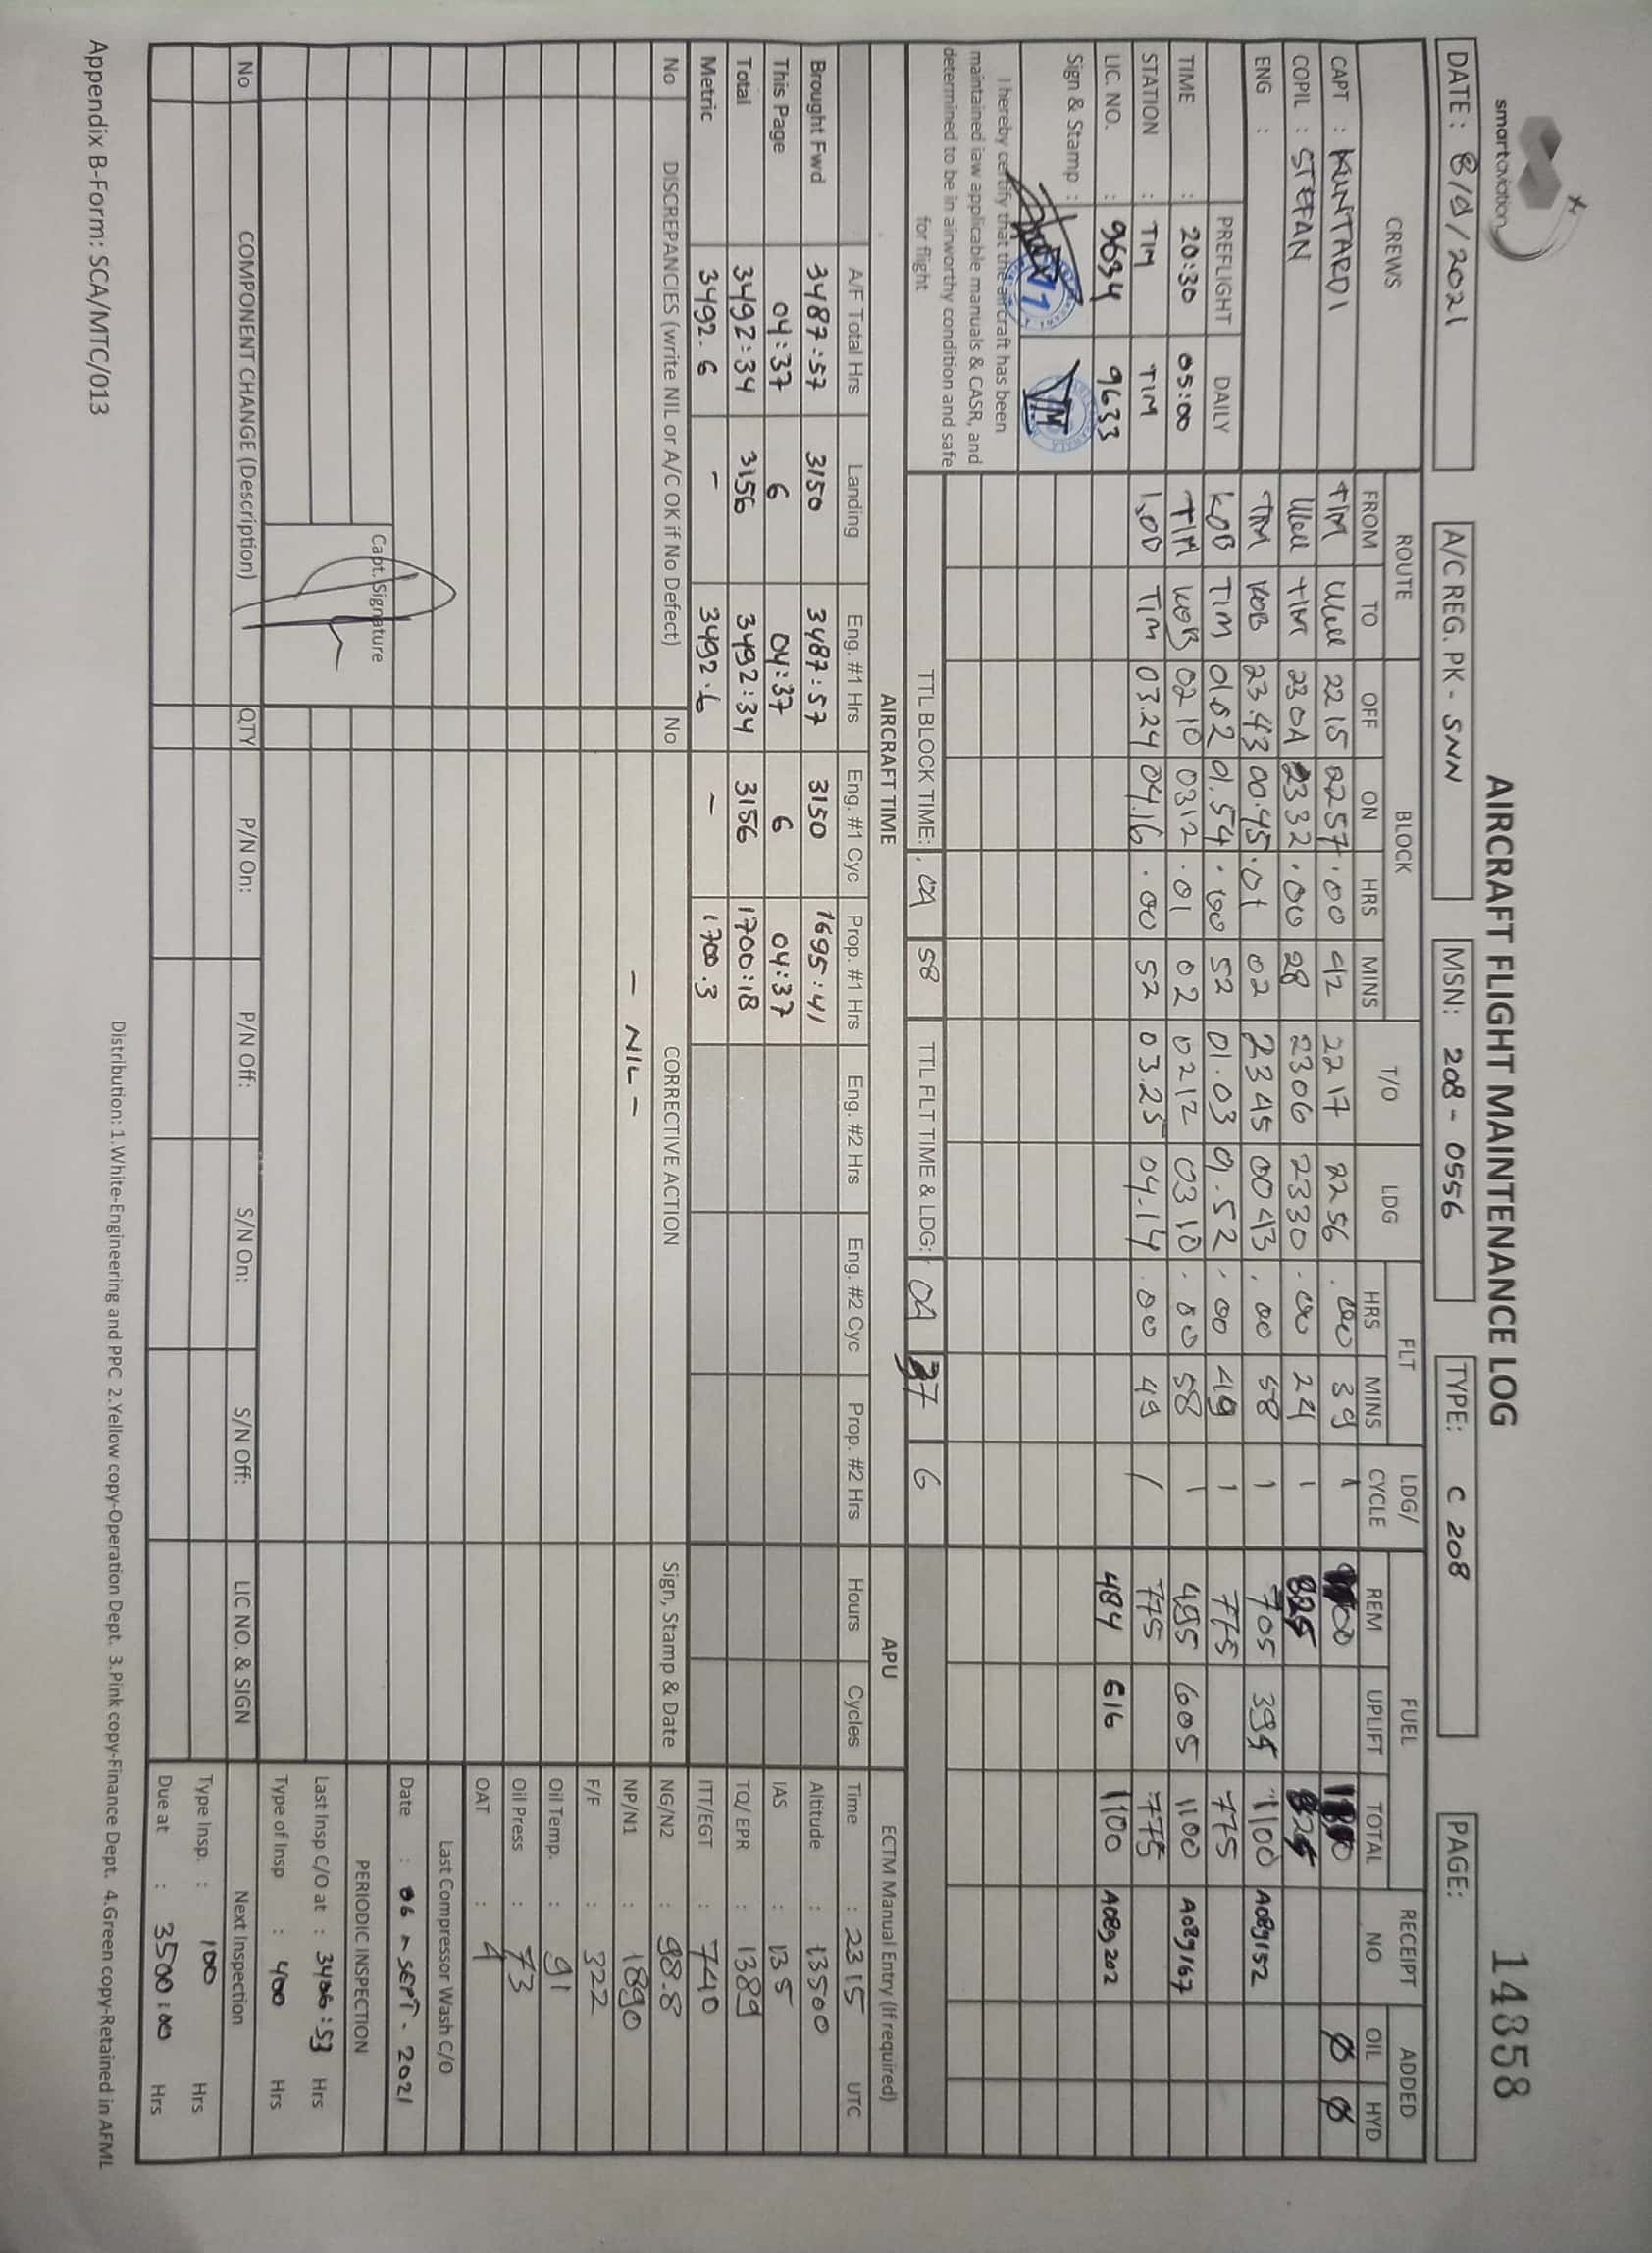 smartaviation
AIRCRAFT FLIGHT MAINTENANCE LOG
14358
DATE : 8/9/2021
A/C REG. PK - SNN
MSN: 208 - 0556
TYPE: C 208
PAGE:
CREWS ROUTE BLOCK T/O LDG FLT LDG/ CYCLE FUEL RECEIPT NO ADDED
FROM TO OFF ON HRS MINS HRS MINS REM UPLIFT TOTAL OIL HYD
CAPT : KUNTARDI TIM 22 15 22 57 . 00 42 22 17 22 56 . 00 39 1 Ø Ø
COPIL : STEFAN TIM 23 04 23 32 . 00 28 23 06 23 30 . 00 24 1 825 825
ENG : TIM KOB 23.43 00.45 . 01 02 23 45 00 43 . 00 58 1 705 395 1100 A089152
PREFLIGHT DAILY KOB TIM 01.02 01.54 . 00 52 01.03 01.52 . 00 49 1 775 775
TIME : 20:30 05:00 TIM KOB 02 10 03 12 . 01 02 02 12 03 10 . 00 58 1 495 605 1100 A089167
STATION : TIM TIM KOB TIM 03.24 04.16 . 00 52 03.25 04.14 . 00 49 1 775 775
LIC. NO. : 9634 9633 484 616 1100 A089202
Sign & Stamp :
I hereby certify that the aircraft has been
maintained iaw applicable manuals & CASR, and
determined to be in airworthy condition and safe
for flight
TTL BLOCK TIME: . 04 58 TTL FLT TIME & LDG: 04 37 6
AIRCRAFT TIME APU ECTM Manual Entry (If required)
A/F Total Hrs Landing Eng. #1 Hrs Eng. #1 Cyc Prop. #1 Hrs Eng. #2 Hrs Eng. #2 Cyc Prop. #2 Hrs Hours Cycles Time : 2315 UTC
Brought Fwd 3487:57 3150 3487:57 3150 1695:41 Altitude : 13500
This Page 04:37 6 04:37 6 04:37 IAS : 135
Total 3492:34 3156 3492:34 3156 1700:18 TQ/ EPR : 1389
Metric 3492.6 - 3492.6 - 1700.3 ITT/EGT : 740
No DISCREPANCIES (write NIL or A/C OK if No Defect) No CORRECTIVE ACTION Sign, Stamp & Date NG/N2 : 98.8
- NIL - NP/N1 : 1890
F/F : 322
Oil Temp. : 91
Oil Press : 73
OAT : 4
Last Compressor Wash C/O
Capt. Signature
Date : 06 - SEPT - 2021
PERIODIC INSPECTION
Last Insp C/O at : 3406:53 Hrs
Type of Insp : 400 Hrs
No COMPONENT CHANGE (Description) QTY P/N On: P/N Off: S/N On: S/N Off: LIC NO. & SIGN Next Inspection
Type Insp. : 100 Hrs
Due at : 3500:00 Hrs
Distribution: 1.White-Engineering and PPC 2.Yellow copy-Operation Dept. 3.Pink copy-Finance Dept. 4.Green copy-Retained in AFML
Appendix B-Form: SCA/MTC/013